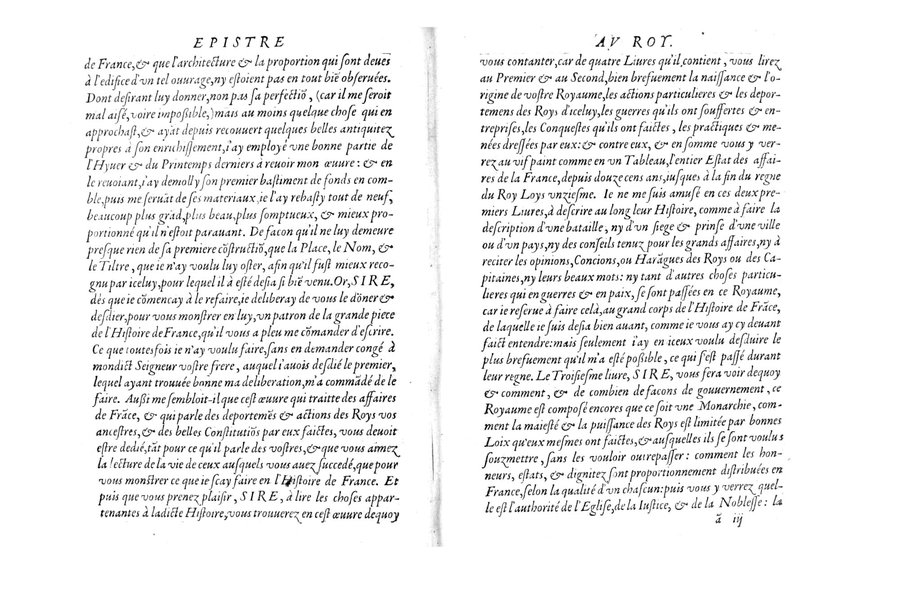 EPISTRE
de France,& que l'architecture & la proportion qui sont deues
à l'edifice d'vn tel ouurage,ny estoient pas en tout biē obseruées.
Dont desirant luy donner,non pas sa perfectiõ, (car il me seroit
mal aisé, voire impoßible,)mais au moins quelque chose qui en
approchast,& ayāt depuis recouuert quelques belles antiquitez
propres à son enrichissement,i'ay employé vne bonne partie de
l'Hyuer & du Printemps derniers à reuoir mon œuure : & en
le reuoiant,i'ay demolly son premier bastiment de fonds en com-
ble,puis me seruāt de ses materiaux,ie l'ay rebasty tout de neuf,
beaucoup plus grād,plus beau,plus somptueux, & mieux pro-
portionné qu'il n'estoit parauant. De facon qu'il ne luy demeure
presque rien de sa premiere cõstructiõ,que la Place, le Nom,&
le Tiltre , que ie n'ay voulu luy oster, afin qu'il fust mieux reco-
gnu par iceluy,pour lequel il à esté desia si biē venu.Or,SIRE,
dés que ie cõmencay à le refaire,ie deliberay de vous le dõner&
desdier,pour vous monstrer en luy,vn patron de la grande piece
de l'Histoire de France,qu'il vous a pleu me cõmander d'escrire.
Ce que toutesfois ie n'ay voulu faire,sans en demander congé à
mondict Seigneur vostre frere , auquel i'auois desdié le premier,
lequel ayant trouuée bonne ma deliberation,m'a commādé de le
faire. Außi me sembloit-il que cest œuure qui traitte des affaires
de Frāce, & qui parle des deportemēs & actions des Roys vos
ancestres,& des belles Constitutiõs par eux faictes, vous deuoit
estre dedié,tāt pour ce qu'il parle des vostres,& que vous aimez
la lecture de la vie de ceux ausquels vous auez succedé,que pour
vous monstrer ce que ie sçay faire en l'Histoire de France. Et
puis que vous prenez plaisir, SIRE, à lire les choses appar-
tenantes à ladicte Histoire,vous trouuerez en cest œuure dequoy
AV ROY.
vous contanter,car de quatre Liures qu'il,contient , vous lirez
au Premier & au Second,bien brefuement la naissance & l'o-
rigine de vostre Royaume,les actions particulieres & les depor-
temens des Roys d'iceluy,les guerres qu'ils ont souffertes & en-
treprises,les Conquestes qu'ils ont faictes , les practiques & me-
nées dressées par eux: & contre eux, & en somme vous y ver-
rez au vif paint comme en vn Tableau,l'entier Estat des affai-
res de la France,depuis douze cens ans,iusques à la fin du regne
du Roy Loys vnziesme. Ie ne me suis amusé en ces deux pre-
miers Liures,à descrire au long leur Histoire, comme à faire la
description d'vne bataille, ny d'vn siege & prinse d'vne ville
ou d'vn pays,ny des conseils tenuz pour les grands affaires,ny à
reciter les opinions,Concions,ou Harāgues des Roys ou des Ca-
pitaines,ny leurs beaux mots: ny tant d'autres choses particu-
lieres qui en guerres & en paix, se sont passées en ce Royaume,
car ie reserue à faire celà,au grand corps de l'Histoire de Frāce,
de laquelle ie suis desia bien auant, comme ie vous ay cy deuant
faict entendre:mais seulement i'ay en iceux voulu desduire le
plus brefuement qu'il m'a esté poßible , ce qui s'est passé durant
leur regne. Le Troisiesme liure, SIRE, vous fera voir dequoy
& comment , & de combien de facons de gouuernement , ce
Royaume est composé encores que ce soit vne Monarchie, com-
ment la maiesté & la puissance des Roys est limitée par bonnes
Loix qu'eux mesmes ont faictes,& ausquelles ils se sont voulus
souzmettre , sans les vouloir outrepasser : comment les hon-
neurs, estats, & dignitez sont proportionnement distribuées en
France,selon la qualité d'vn chascun:puis vous y verrez quel-
le est l'authorité de l'Eglise,de la Iustice, & de la Noblesse : la
ā iij